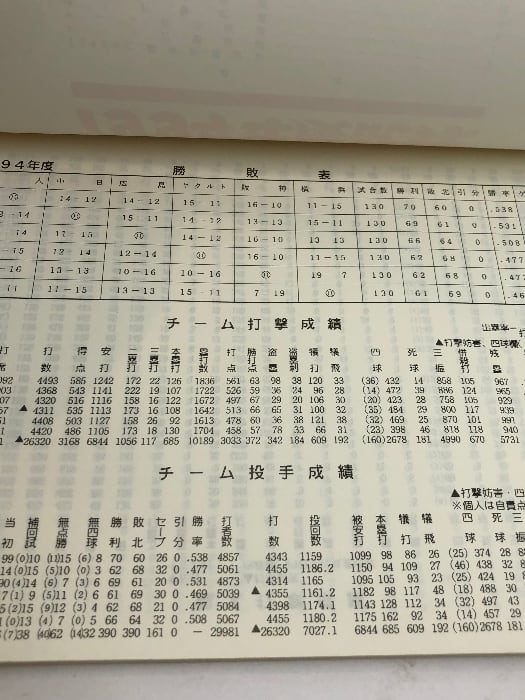 94年度 勝敗表
人 中日 広島 ヤクルト 阪神 横浜 試合数 勝利 敗北 引分 勝率
14-12 14-12 15-11 16-10 11-15 130 70 60 0 .538
-14 15-11 14-12 13-13 15-11 130 69 61 0 .531
-14 11-15 14-12 16-10 13 13 130 66 64 0 .508
-15 12-14 12-14 16-10 11-15 130 62 68 0 .477
-16 13-13 10-16 10-16 19 7 130 62 68 0 .477
11 11-15 13-13 15-11 7-19 130 61 69 0
チーム打撃成績
出塁率
▲打撃妨害、四球欄
打数 得点 安打 二塁打 三塁打 本塁打 塁打 打点 盗塁 盗塁刺 犠打 犠飛 四球 死球 三振 併殺打 残塁
4493 585 1242 172 22 126 1836 561 63 98 38 120 33 (36) 432 14 858 105 967
4368 543 1141 222 19 107 1722 526 59 36 24 96 28 (14) 472 39 886 124 965
4320 516 1116 158 16 122 1672 497 67 29 20 106 30 (20) 423 28 758 105 929
▲ 4311 535 1113 173 16 108 1642 513 66 65 31 100 32 (35) 484 29 800 117 939
4408 503 1127 158 26 92 1613 478 60 36 38 121 38 (32) 469 25 870 101 991
4420 486 1105 173 18 130 1704 458 57 78 33 66 31 (23) 398 46 818 118 940
▲26320 3168 6844 1056 117 685 10189 3033 372 342 184 609 192 (160)2678 181 4990 670 5731
チーム投手成績
▲打撃妨害・四
※個人は自責点
当初 補回試 無点勝 無四球 勝利 敗北 セーブ 引分 勝率 打者数 打数 投回数 被安打 本塁打 犠打 犠飛 四球 死球 三振
99 (0)10 (1)15 (6) 8 70 60 26 0 .538 4857 4343 1159 1099 98 86 26 (25) 374 28
14 (0)15 (5)10 (0) 3 62 68 32 0 .477 5061 4455 1186.2 1150 94 109 27 (46) 438 32
90 (4)14 (6) 7 (3) 6 69 61 20 0 .531 4873 4314 1165 1095 105 93 23 (25) 424 19
7 (1) 9 (5)11 (2) 6 61 69 30 0 .469 5039 ▲ 4355 1161.2 1182 98 117 48 (18) 488 30
5 (2)15 (9)12 (3) 4 62 68 21 0 .477 5084 4398 1174.1 1143 128 112 34 (32) 497 43
1 (0)13 (4) 7 (0) 5 66 64 32 0 .508 5067 4455 1180.2 1175 162 92 34 (14) 457 29
(7)38 (40)62 (14)32 390 390 161 0 — 29981 ▲26320 7027.1 6844 685 609 192 (160)2678 181